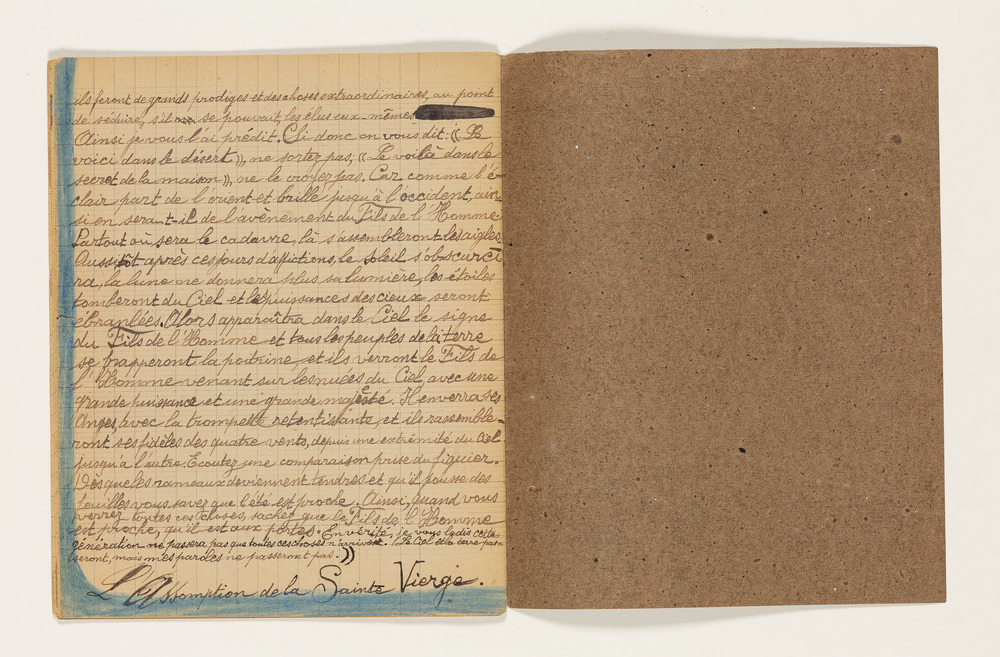 ils feront de grands prodiges et des choses extraordinaires, au point
de séduire, s'il se pouvait, les élus eux-mêmes
Ainsi je vous l'ai prédit. Si donc on vous dit: (( Le
voici dans le désert )), ne sortez pas, (( Le voilà dans le
secret de la maison )), ne le croyez pas. Car comme l'é-
clair part de l'orient et brille jusqu'à l'occident, ain
si en sera-t-il de l'avènement du Fils de l'Homme.
Partout où sera le cadavre, là s'assembleront les aigles.
Aussitôt après ces jours d'afflictions, le soleil s'obscurci
ra, la lune ne donnera plus sa lumière, les étoiles
tomberont du Ciel et les puissances des cieux seront
ébranlées. Alors apparaîtra dans le Ciel le signe
du Fils de l'Homme et tous les peuples de la terre
se frapperont la poitrine et ils verront le Fils de
l'Homme venant sur les nuées du Ciel, avec une
grande puissance et une grande majesté. Il enverra ses
Anges, avec la trompette retentissante, et ils rassemble-
ront ses fidèles des quatre vents, depuis une extrémité du Ciel
jusqu'à l'autre. Ecoutez une comparaison prise du figuier.
Dès que les rameaux deviennent tendres et qu'il pousse des
feuilles vous savez que l'été est proche. Ainsi, quand vous
verrez toutes ces choses, sachez que le Fils de l'Homme
est proche, qu'il est aux portes. En vérité, je vous le dis cette
génération ne passera pas que toutes ces choses n'arrivent. Le Ciel et la terre pas-
seront, mais mes paroles ne passeront pas. ))
L'Assomption de la Sainte Vierge.